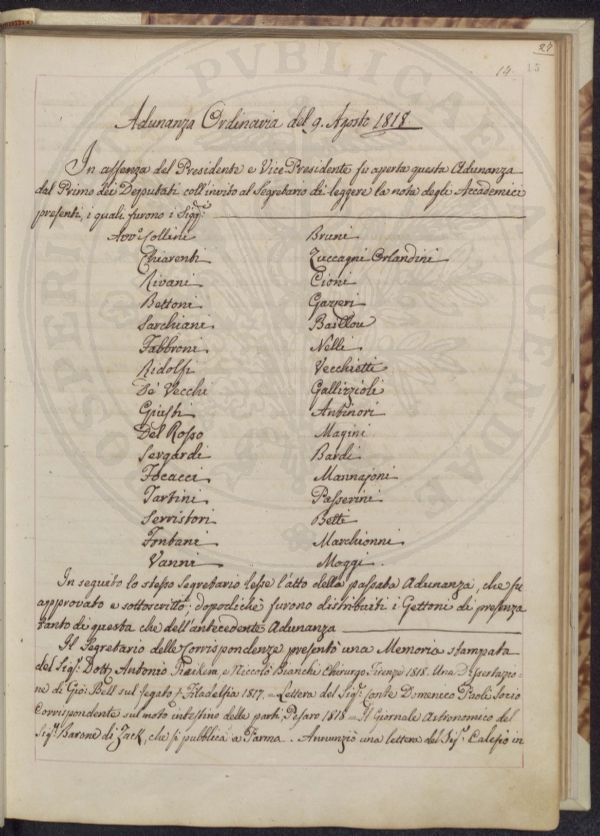 27
14.
15
Adunanza Ordinaria del 9. Agosto 1818
In assenza del Presidente e Vice Presidente fu aperta questa Adunanza
dal Primo dei Deputati coll'invito al Segretario di leggere la nota degli Accademici
presenti, i quali furono i Sigg.ri
Avv.º Collini
Chiarenti
Rivani
Bettoni
Sarchiani
Fabbroni
Ridolfi
De' Vecchi
Giusti
Del Rosso
Sergardi
Focacci
Tartini
Serristori
Fontani
Vanni
Bruni
Zuccagni Orlandini
Cioni
Gazzeri
Basellou
Nelli
Vecchietti
Gallizzioli
Antinori
Magini
Bardi
Mannajoni
Passerini
Betti
Marchionni
Moggi.
In seguito lo stesso Segretario lesse l'atto della passata Adunanza, che fu
approvato e sottoscritto; dopodiché furono distribuiti i Gettoni di presenza
tanto di questa che dell'antecedente Adunanza
Il Segretario delle Corrispondenze presentò una Memoria stampata
del Sig.r Dott. Antonio e Niccolò Bianchi Chirurgo. Firenze 1818. Una Dissertazio=
ne di Gio: Bell sul fegato Filadelfia 1817. = Lettera del Sig.r Conte Domenico Paoli Socio
Corrispondente sul moto intestino delle parti; Pesaro 1818 = Il Giornale Astronomico del
Sig.r Barone di Zack, che si pubblica a Parma. Annunziò una lettera del Sig.r Calesio in
PVBLICAE